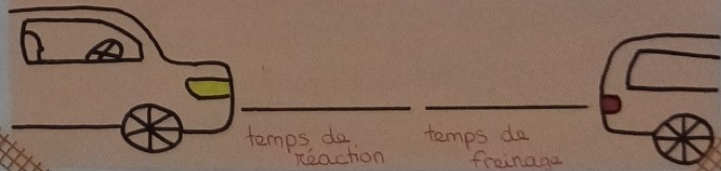 temps de
réaction
temps de
freinage